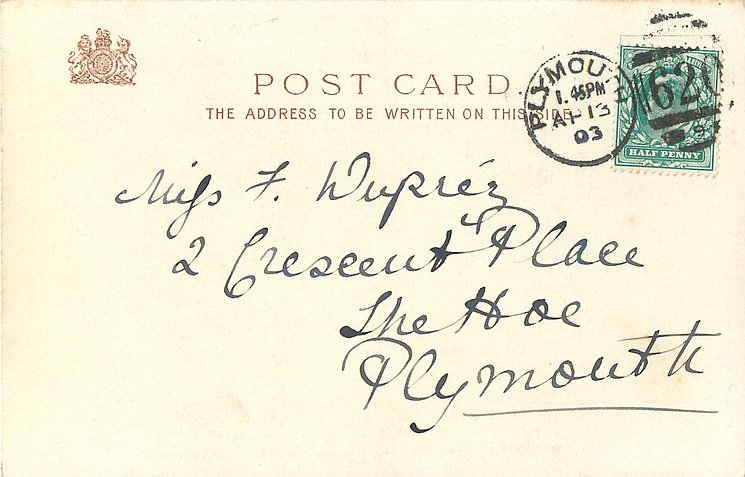 POST CARD
THE ADDRESS TO BE WRITTEN ON THIS SIDE
PLYMOUTH
1.45PM
AP 13
03
62
HALF PENNY
Miss F. Dupréz
2 Crescent Place
The Hoe
Plymouth